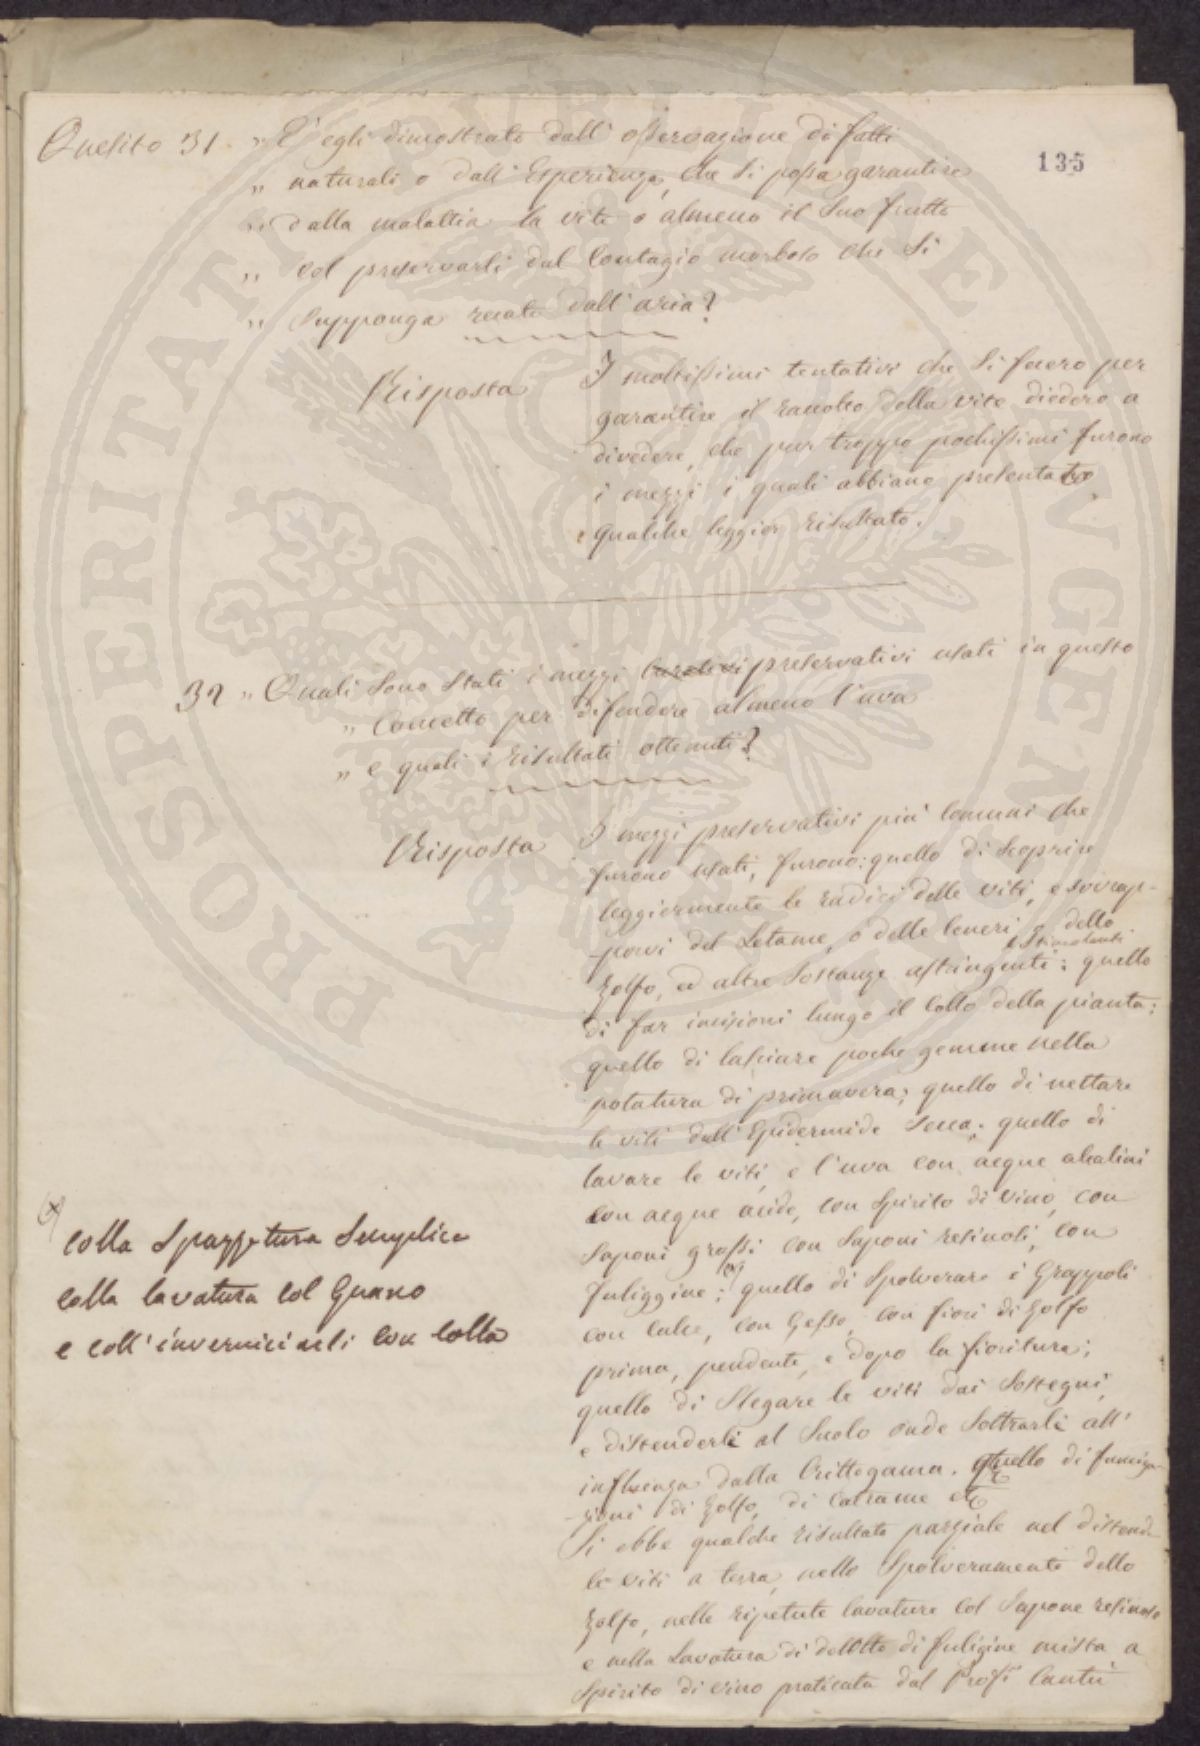 135
Quesito 31. „ È egli dimostrato dall' osservazione di fatti
„ naturali o dall' Esperienza, che si possa garantire
„ dalla malattia la vite o almeno il suo frutto
„ col preservarli dal Contagio morboso che si
„ supponga recato dall' aria?
Risposta
I moltissimi tentativi che si fecero per
garantire il raccolto della vite diedero a
divedere, che pur troppo pochissimi furono
i mezzi i quali abbiano presentato
qualche leggier risultato.
32 „ Quali sono stati i mezzi curativi preservativi usati in questo
„ Concetto per difendere almeno l'uva
„ e quali i risultati ottenuti?
Risposta
I mezzi preservativi più comuni che
furono usati, furono: quello di scoprire
leggiermente le radici delle viti, e sovrap-
porvi del Letame, o delle Ceneri, o dello
e stimolanti
Zolfo, ed altre sostanze astringenti: quello
di far incisioni lungo il Collo della pianta;
quello di lasciare poche gemme nella
potatura di primavera; quello di nettare
le viti dall' Epidermide secca; quello di
lavare le viti, e l'uva con acque alcalini
con acque acide, con Spirito di vino, con
Saponi grossi con Saponi resinosi, con
Fuliggine; quello di Spolverare i Grappoli
con Calce, con Gesso, con fiori di Zolfo
prima, pendente, e dopo la fioritura;
quello di Slegare le viti dai Sostegni,
e distenderle al Suolo onde Soltrarle all'
influenza dalla Crittogama. quello di fumiga-
zioni di Zolfo, di Catrame etc
Si ebbe qualche risultato parziale nel distende
le viti a terra, nello Spolveramento dello
Zolfo, nelle ripetute lavature col Sapone resinoso
e nella Lavatura di decotto di fuligine mista a
Spirito di vino praticata dal Profr Cantù
colla Spazzatura Semplice
colla lavatura col Guano
e coll' inverniciarli con Colla
PROSPERITATI PVBLICAE AVGENDAE